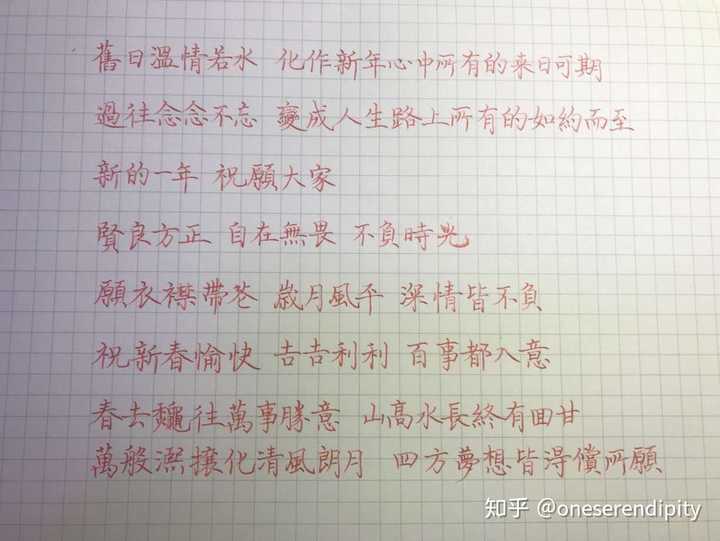 舊日溫情若水 化作新年心中所有的来日可期
過往念念不忘 變成人生路上所有的如約而至
新的一年 祝願大家
賢良方正 自在無畏 不負時光
願衣襟帶花 歲月風平 深情皆不負
祝新春愉快 吉吉利利 百事都入意
春去龝往萬事勝意 山高水長終有回甘
萬般熙攘化清風朗月 四方夢想皆淂償所願
知乎 @oneserendipity